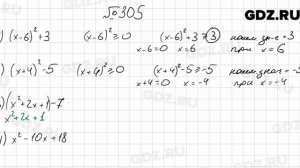 №305
GDZ.RU
) (x-6)²+3 (x-6)²≥0 (x-6)²+3≥3 наим зн-е=3
x-6=0 x=6 при x=6
) (x+4)²-5 (x+4)²≥0 (x+4)²-5≥-5
x+4=0 x=-4 при x=-4
)(x²+2x+1)-7
x²+2x+1
) x²-10x+18
GDZ.RU